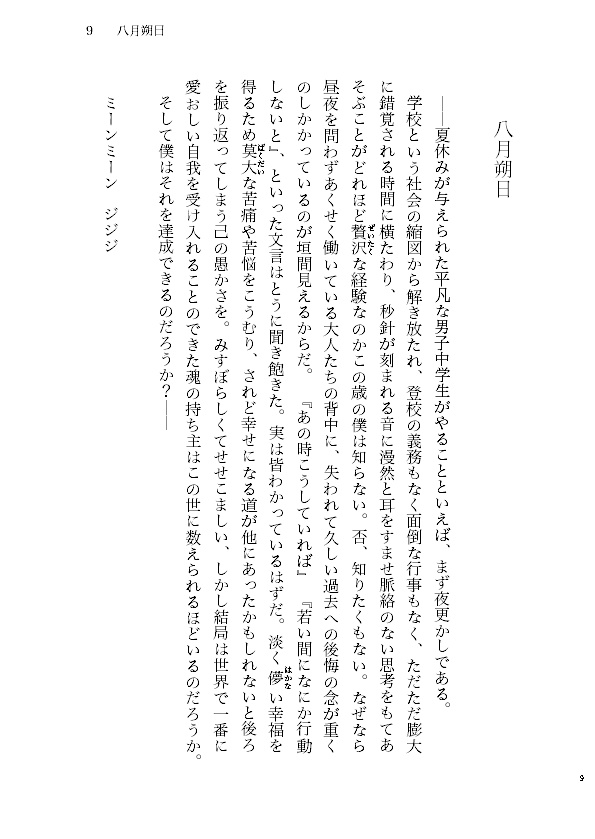 9 八月朔日
八月朔日
――夏休みが与えられた平凡な男子中学生がやることといえば、まず夜更かしである。
学校という社会の縮図から解き放たれ、登校の義務もなく面倒な行事もなく、ただただ膨大
に錯覚される時間に横たわり、秒針が刻まれる音に漫然と耳をすませ脈絡のない思考をもてあ
そぶことがどれほど贅沢な経験なのかこの歳の僕は知らない。否、知りたくもない。なぜなら
昼夜を問わずあくせく働いている大人たちの背中に、失われて久しい過去への後悔の念が重く
のしかかっているのが垣間見えるからだ。『あの時こうしていれば』『若い間になにか行動
しないと』、といった文言はとうに聞き飽きた。実は皆わかっているはずだ。淡く儚い幸福を
得るため莫大な苦痛や苦悩をこうむり、されど幸せになる道が他にあったかもしれないと後ろ
を振り返ってしまう己の愚かさを。みすぼらしくてせせこましい、しかし結局は世界で一番に
愛おしい自我を受け入れることのできた魂の持ち主はこの世に数えられるほどいるのだろうか。
そして僕はそれを達成できるのだろうか？――
ミーンミーン ジジジ
9